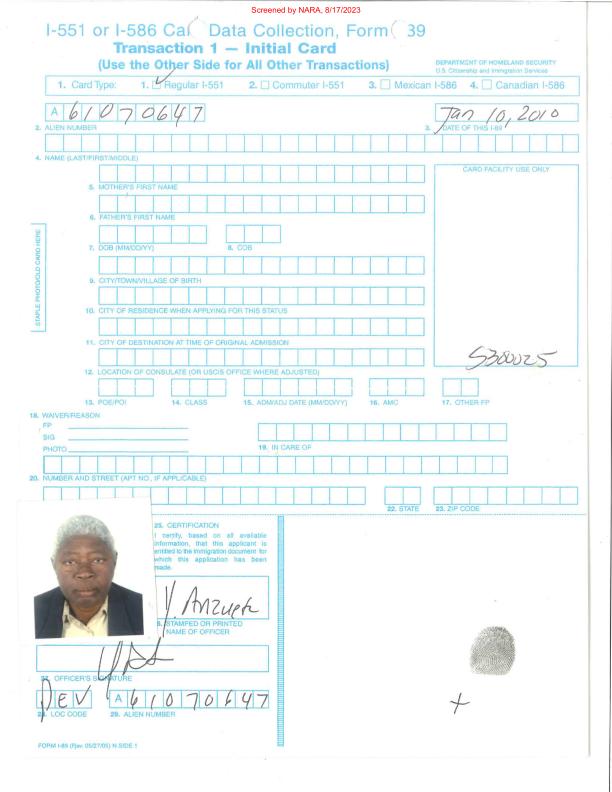 Screened by NARA, 8/17/2023
I-551 or I-586 Ca Data Collection, Form 39
Transaction 1 — Initial Card
(Use the Other Side for All Other Transactions)
DEPARTMENT OF HOMELAND SECURITY
U.S. Citizenship and Immigration Services
1. Card Type: 1. Regular I-551 2. Commuter I-551 3. Mexican I-586 4. Canadian I-586
A 61070647
Jan 10, 2010
2. ALIEN NUMBER
3. DATE OF THIS I-89
4. NAME (LAST/FIRST/MIDDLE)
CARD FACILITY USE ONLY
5. MOTHER'S FIRST NAME
6. FATHER'S FIRST NAME
STAPLE PHOTO/OLD CARD HERE
7. DOB (MM/DD/YY) 8. COB
9. CITY/TOWN/VILLAGE OF BIRTH
10. CITY OF RESIDENCE WHEN APPLYING FOR THIS STATUS
11. CITY OF DESTINATION AT TIME OF ORIGINAL ADMISSION
5300025
12. LOCATION OF CONSULATE (OR USCIS OFFICE WHERE ADJUSTED)
13. POE/POI 14. CLASS 15. ADM/ADJ DATE (MM/DD/YY) 16. AMC 17. OTHER-FP
18. WAIVER/REASON
FP
SIG
PHOTO
19. IN CARE OF
20. NUMBER AND STREET (APT NO., IF APPLICABLE)
22. STATE 23. ZIP CODE
25. CERTIFICATION
I certify, based on all available
information, that this applicant is
entitled to the immigration document for
which this application has been
made.
STAMPED OR PRINTED
NAME OF OFFICER
27. OFFICER'S SIGNATURE
DEV A 61070647
28. LOC CODE 29. ALIEN NUMBER
FORM I-89 (Rev. 05/27/05) N SIDE 1